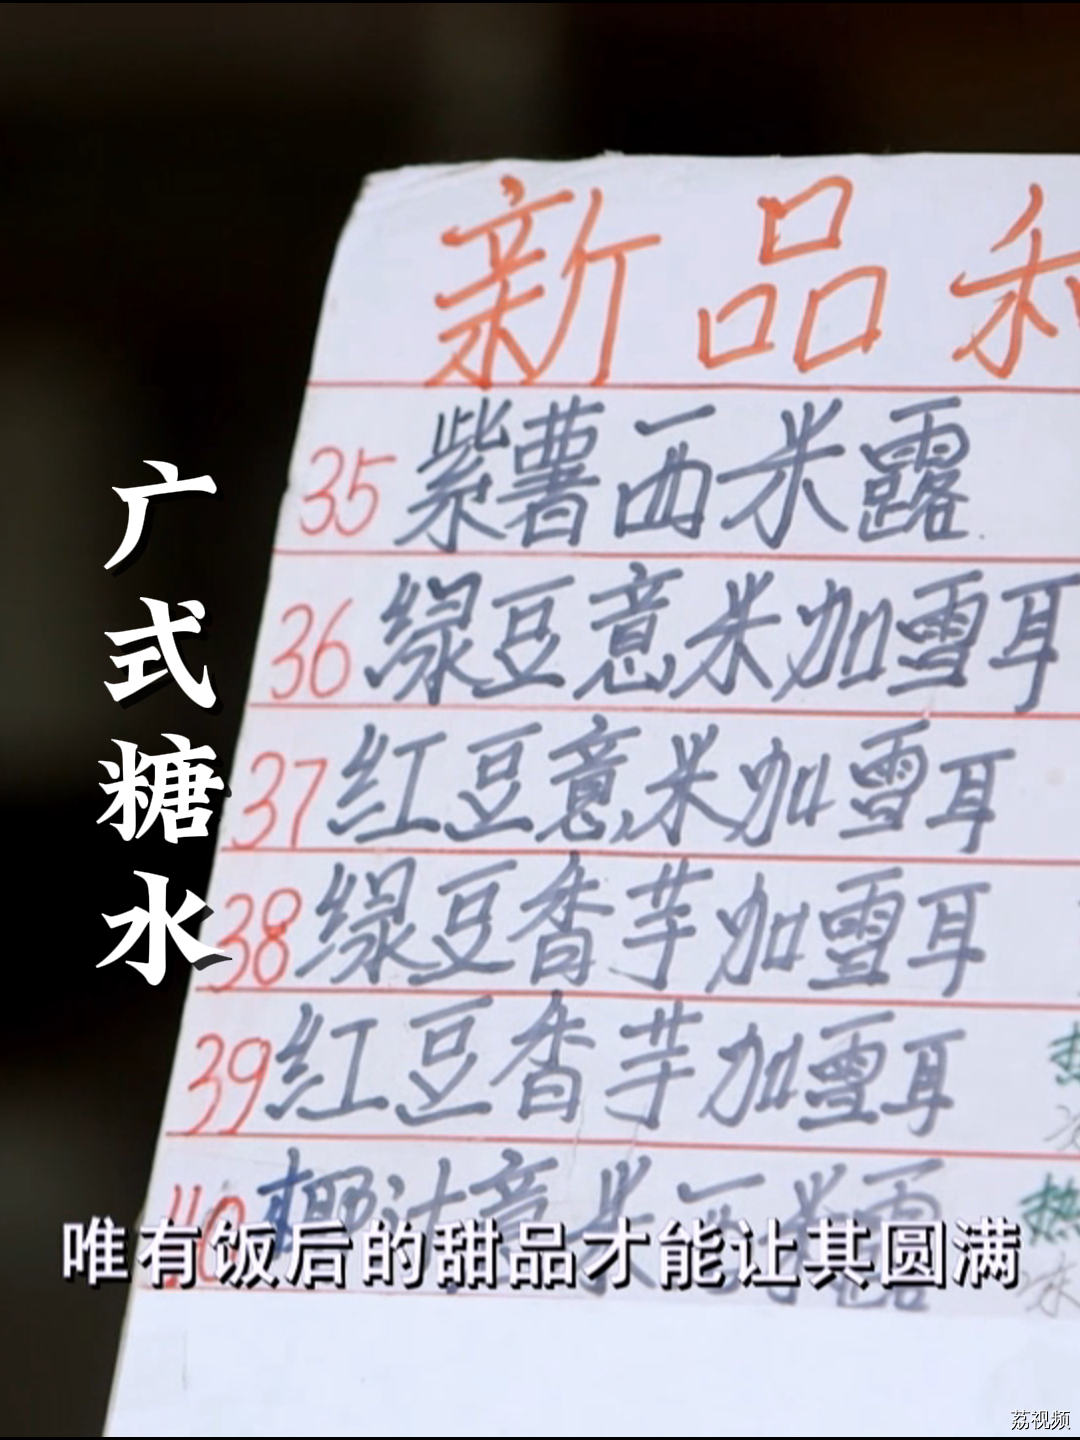 新品和
35 紫薯西米露
36 绿豆意米加雪耳
37 红豆意米加雪耳
38 绿豆香芋加雪耳
39 红豆香芋加雪耳
40 椰汁意米西米露
热
热
广式糖水
唯有饭后的甜品才能让其圆满
荔视频